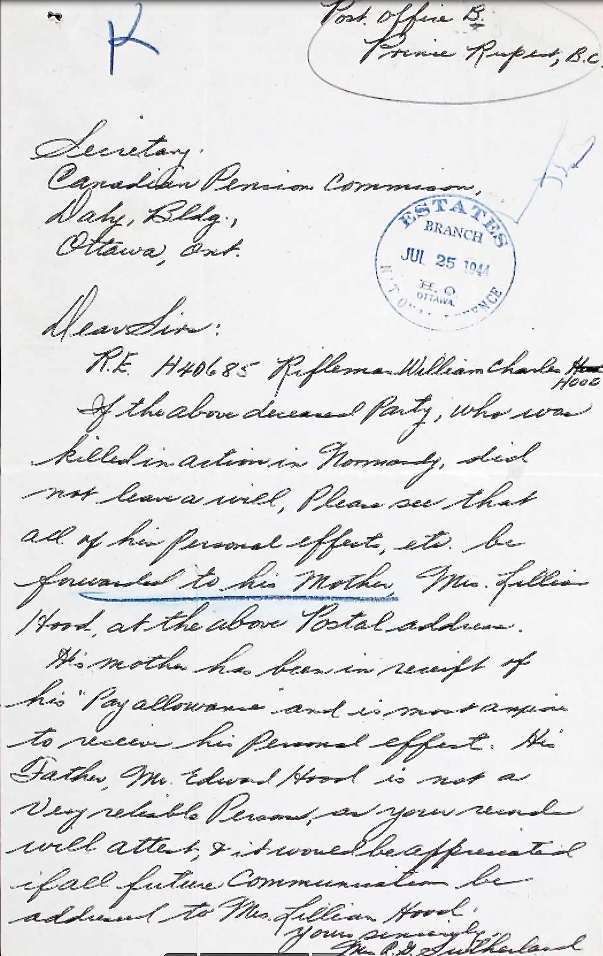 K
Post Office B.
Prince Rupert, B.C.
Secretary.
Canadian Pension Commison,
Daly, Bldg.,
Ottawa, Ont.
ESTATES
BRANCH
JUL 25 1944
H.Q.
OTTAWA.
Dear Sir:
R.E. H40685 Rifleman William Charles
Hood
If the above deceased Party, who was
killed in action in Normandy, did
not leave a will, Please see that
all of his Personal effects, etc. be
forwarded to his Mother, Mrs. Lillian
Hood, at the above Postal address.
His mother has been in receipt of
his "Pay allowance" and is most anxious
to receive his Personal effect. His
Father, Mr. Edward Hood is not a
very reliable Person, as your records
will attest, & it would be appreciated
if all future Communication be
addressed to Mrs. Lillian Hood.
Yours sincerely,
Mrs R.G. Sutherland